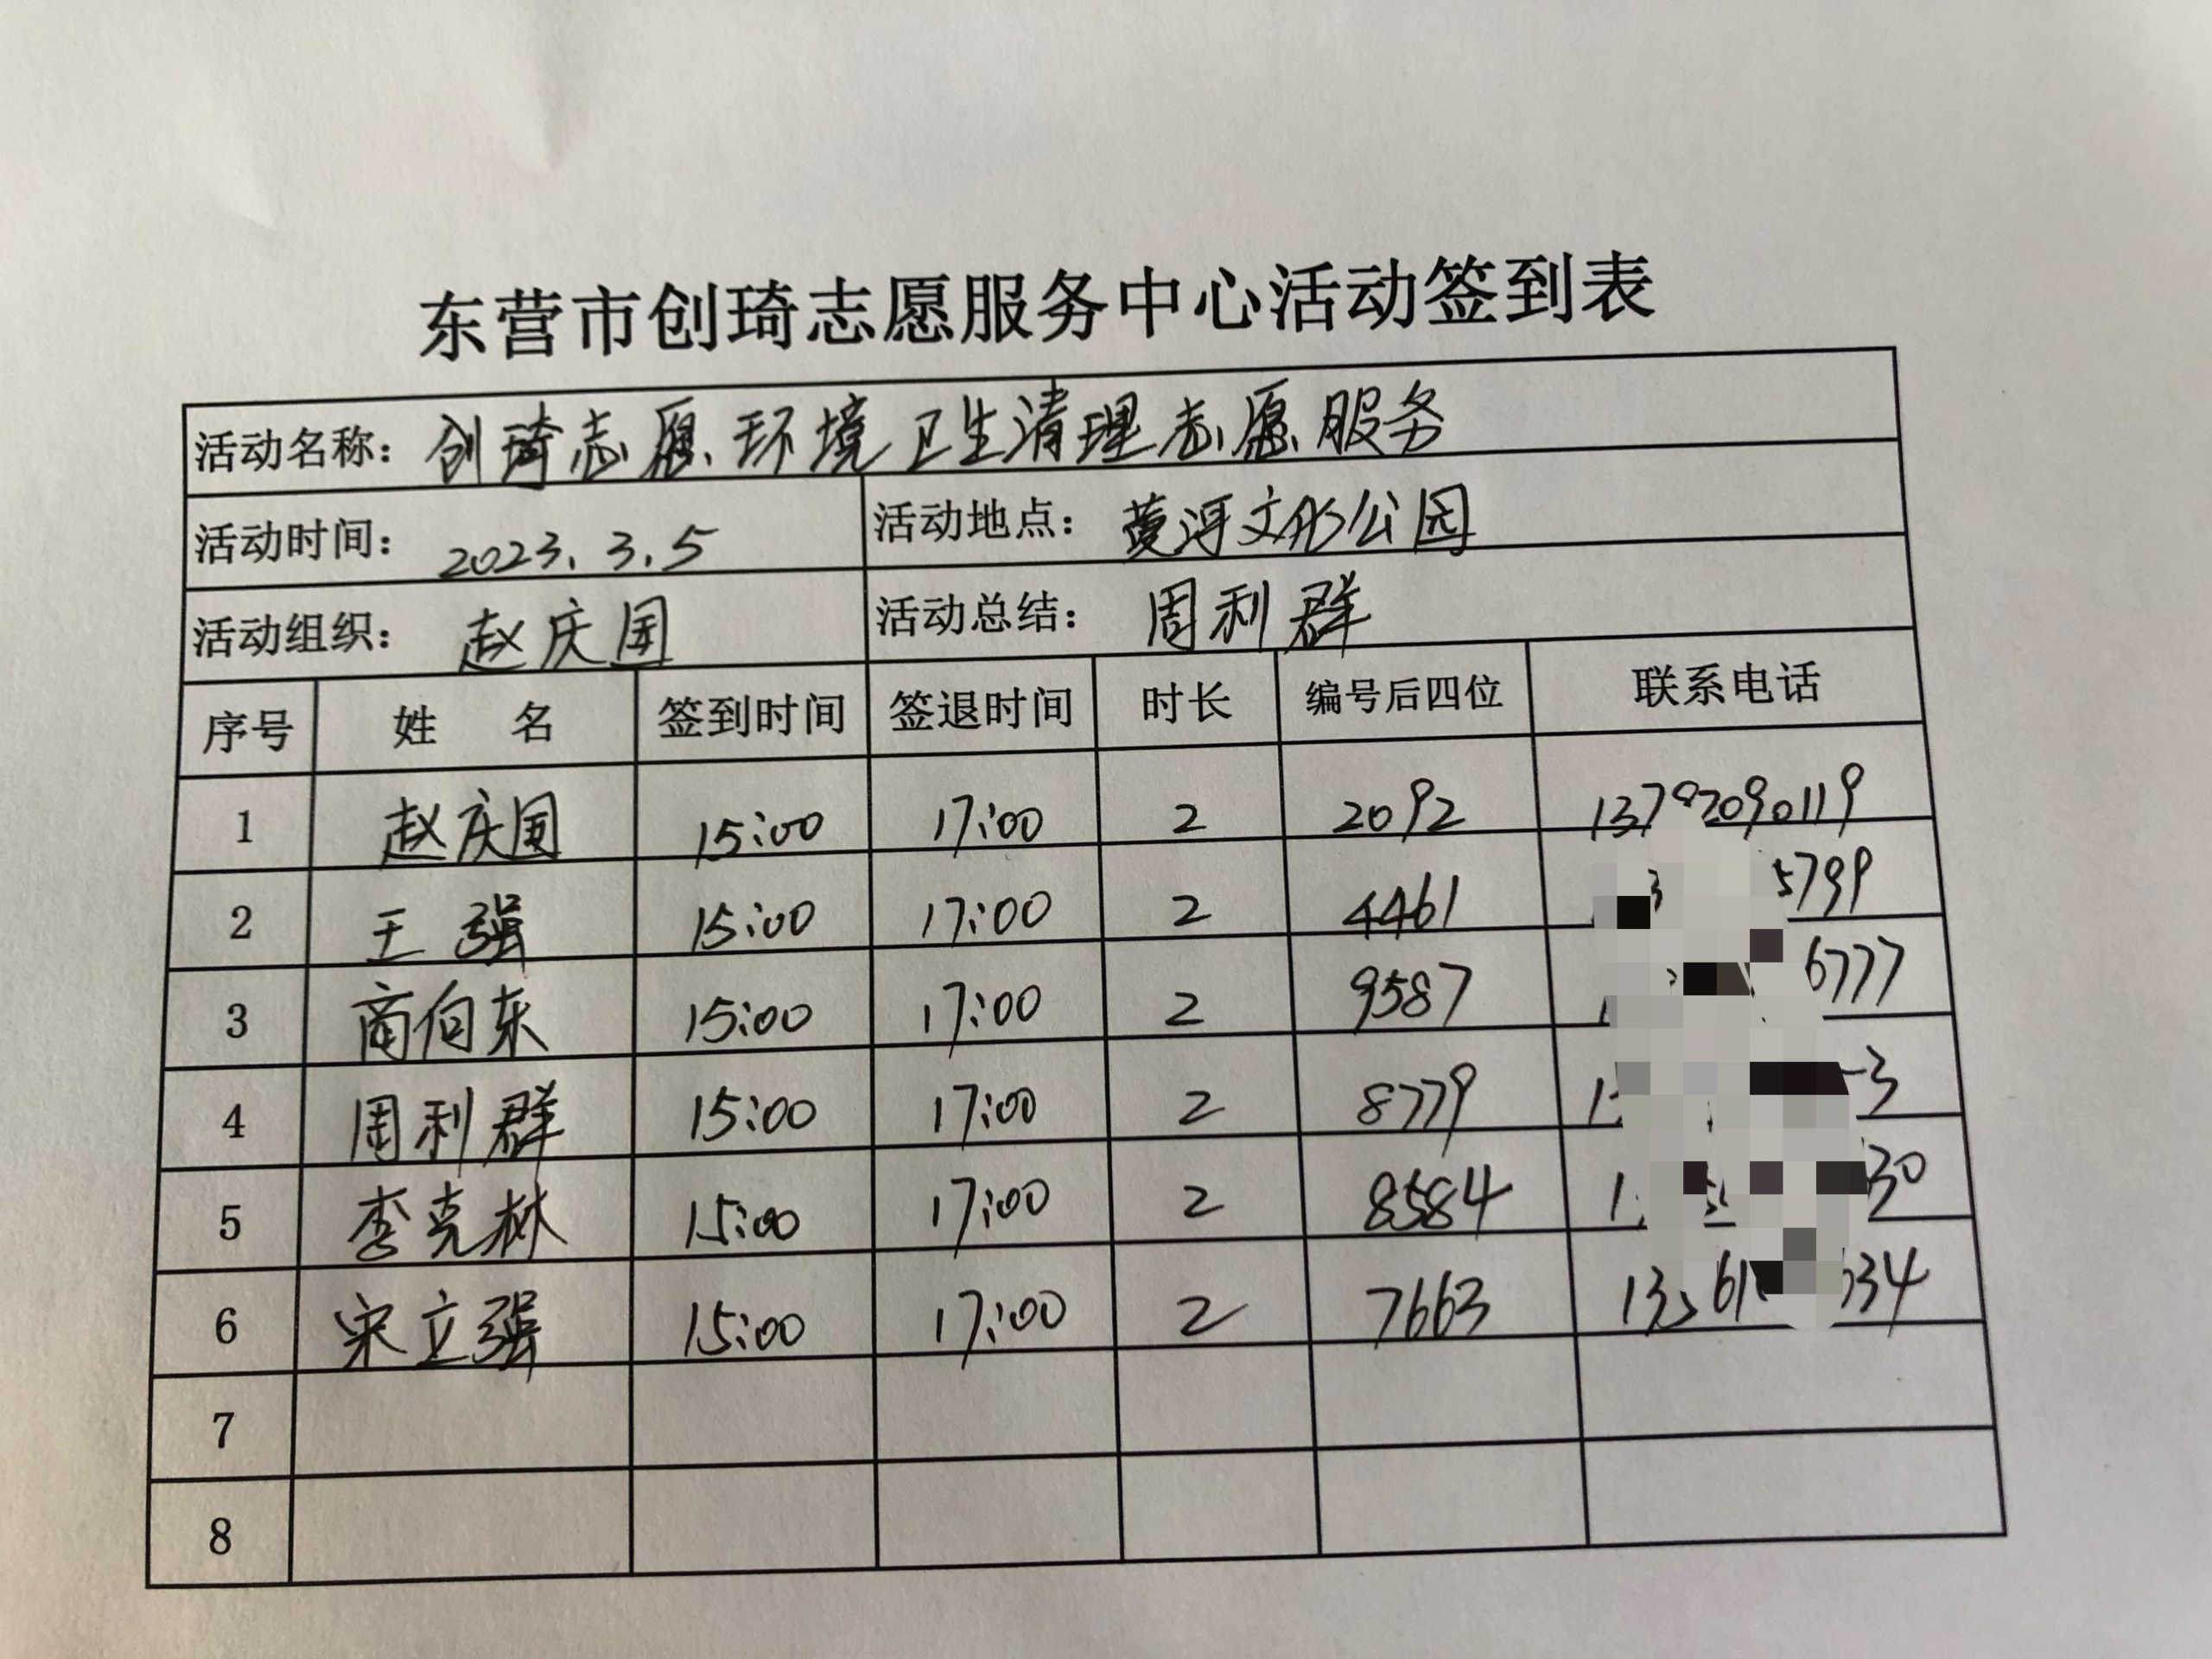 东营市创琦志愿服务中心活动签到表
活动名称：创琦志愿环境卫生清理志愿服务
活动时间：2023.3.5 活动地点：黄河文化公园
活动组织：赵庆国 活动总结：周利群
序号 姓 名 签到时间 签退时间 时长 编号后四位 联系电话
1 赵庆国 15:00 17:00 2 2092 13792090119
2 王强 15:00 17:00 2 4461 5799
3 商向东 15:00 17:00 2 9587 6777
4 周利群 15:00 17:00 2 8779 3
5 李克林 15:00 17:00 2 8584 30
6 宋立强 15:00 17:00 2 7663 34
7
8